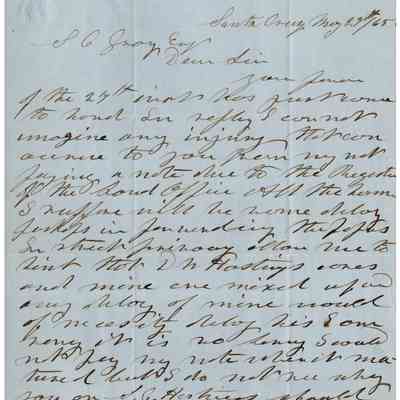 Santa Cruz May 29th 65
S C Gray Esq
Dear Sir
Your favor
of the 27th inst has just come
to hand In reply I can not
imagine any injury that can
accrue to you from my not
paying a note due to the Register
of the Land Office All the harm
I suppose will be some delay
in forwarding the papers
In strict privacy allow me to
hint that D N Hastings cares
and mine are mixed up and
any delay of mine would
of necesity delay his I am
sorry it is no he would
not pay my note when it ma-
tured but I do not see why
you or S C Hastings should